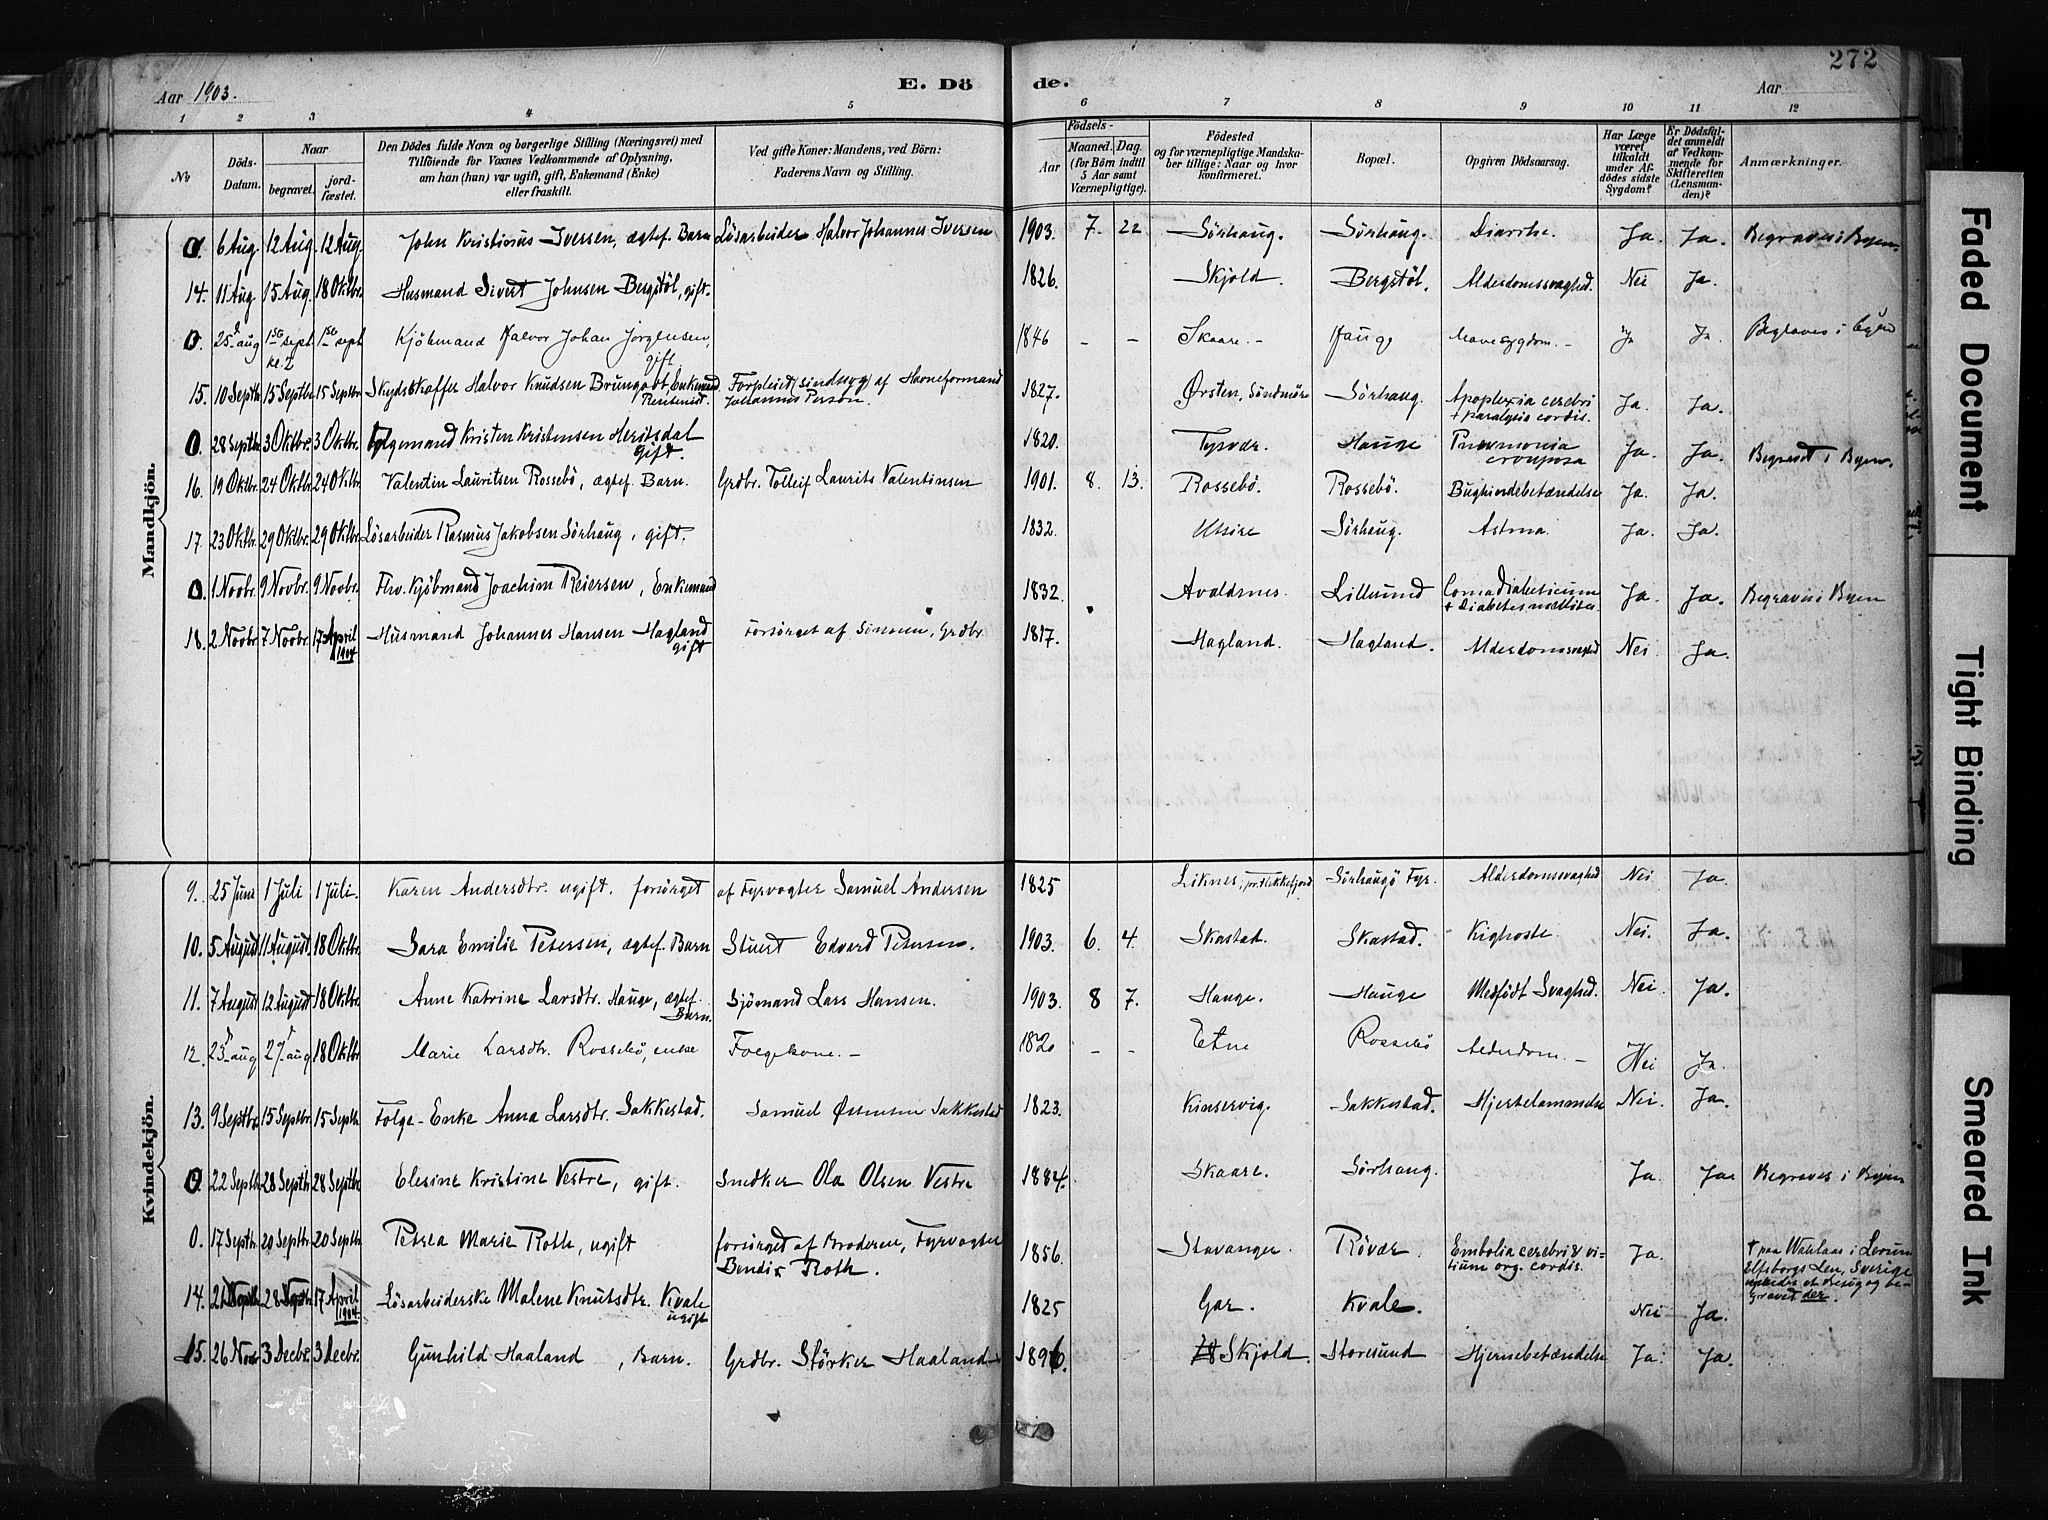 272
Aar 1903. E. Dö de. Aar
1 2 3 4 5 6 7 8 9 10 11 12
№ Döds-Datum. Naar begravet. jordfæstet. Den Dödes fulde Navn og borgerlige Stilling (Næringsvei) med Tilföiende for Voxnes Vedkommende af Oplysning, om han (hun) var ugift, gift, Enkemand (Enke) eller fraskilt. Ved gifte Koner: Mandens, ved Börn: Faderens Navn og Stilling. Födsels- Aar Maaned. Dag. (for Börn indtil 5 Aar samt Værnepligtige). Födested og for værnepligtige Mandskaber tillige: Naar og hvor konfirmeret. Bopæl. Opgiven Dödsaarsag. Har Læge været tilkaldt under Afdödes sidste Sygdom? Er Dödsfaldet anmeldt af Vedkommende for Skifteretten (Lensmanden)? Anmærkninger.
Mandkjön.
0. 6 Aug. 12 Aug. 12 Aug. John Kristinius Iversen, ægtef. Barn Lösarbeider Halvor Johannes Iversen 1903. 7. 22 Sörhaug. Sörhaug. Diarrhe. Ja. Ja. Begraves i Byen.
14. 11 Aug. 15 Aug. 18 Oktbr. Husmand Sivert Johnsen Bergstöl, gift. 1826. - - Skjold. Bergstöl. Alderdomssvaghed. Nei Ja.
0. 25 aug 1ste sept kl. 2 1ste sept Kjöbmand Halvor Johan Jörgensen, gift 1846 - - Skaare. - Hauge Mavesygdom. - Ja Ja. Begraves i Byen
15. 10 Septbr. 15 Septbr. 15 Septbr. Skydsskaffer Halvor Knudsen Brungot, Enkemand Rentenist. Forpleiet (sindssyg) af Havneformand Johannes Person. 1827. Ørsten, Söndmöre Sörhaug. Apoplexia cerebri + paralysis cordis. Ja. Ja.
0. 28 Septbr. 3 Oktbr. 3 Oktbr. Folgemand Kristen Kristensen Heritsdal gift. 1820. Tysvær. Hauge Pneumonia crouposa Ja. Ja. Begravet i Byen.
16. 19 Oktbr. 24 Oktbr. 24 Oktbr. Valentin Lauritsen Rossebö, ægtef. Barn. Grdbr. Tolleif Laurits Valentinsen 1901. 8. 13. Rossebö. Rossebö. Bughindebetændelse Ja. Ja.
17. 23 Oktbr. 29 Oktbr. 29 Oktbr. Lösarbeider Rasmus Jakobsen Sörhaug, gift. 1832. Utsire Sörhaug. Astma. Ja. Ja.
0. 1 Novbr. 9 Novbr. 9 Novbr. Fhv. Kjöbmand Joachim Reiersen, Enkemand 1832. Avaldsnes. Lillesund Coma Diabeticum + Diabetes mellitus. Ja. Ja. Begraves i Byen
18. 2 Novbr. 7 Novbr. 17 April 1904 Husmand Johannes Hansen Hagland gift Forsörget af Sönnen, Grdbr. 1817. Hagland. Hagland. Alderdomssvaghed Nei. Ja.
Kvindekjön.
9. 25 Juni 1 Juli 1 Juli. Karen Andersdtr. ugift. forsörget af Fyrvogter Samuel Andersen 1825 Liknes, pr. Flekkefjord Sörhaugö Fyr. Alderdomssvaghed Nei Ja.
10. 5 August 11 August. 18 Oktbr. Sara Emilie Petersen, ægtef. Barn Stuert Edvard Petersen. 1903. 6. 4. Skastad. Skastad. Kighoste. Nei. Ja.
11. 7 August 12 August 18 Oktbr. Anne Katrine Larsdtr. Hauge, ægtef. Barn. Sjömand Lars Hansen. 1903. 8 7. Hauge. Hauge Medfödt Svaghed. Nei. Ja.
12. 23 aug 27 aug 18 Oktbr Marie Larsdtr. Rossebö, enke Folgekone. - 1820 - - Etne Rossebö Alderdom. - Nei Ja.
13. 9 Septbr. 15 Septbr. 15 Septbr. Folge-Enke Anna Larsdtr. Sakkestad. Samuel Östensen Sakkestad 1823. Kinservig. Sakkestad. Hjertelammelse Nei. Ja.
0 22 Septbr. 28 Septbr. 28 Septbr. Elesine Kristine Vestre, gift. Snedker Ola Olsen Vestre 1884. Skaare. Sörhaug. Ja. Ja. Begraves i Byen
0. 17 Septbr. 20 Septbr. 20 Septbr. Petrea Marie Roth, ugift forsörget af Broderen, Fyrvogter Bendix Roth. 1856. Stavanger. Rövær. Embolia cerebri & vitium org. cordis. Ja. † paa Wahlaas i Lerum Elfsborgs Len, Sverige under et Besög og begravet der
14. 21 28 17 April 1904. Lösarbeiderske Malene Knutsdtr. Kvale ugift 1825 Gar. Kvale. Nei Ja.
15. 26 Nov. 3 Decbr. 3 Decbr. Gunhild Haaland, Barn. Grdbr. Störker Haaland 1896. Skjold. Storesund Hjernebetændelse Ja. Ja.
Faded Document
Tight Binding
Smeared Ink